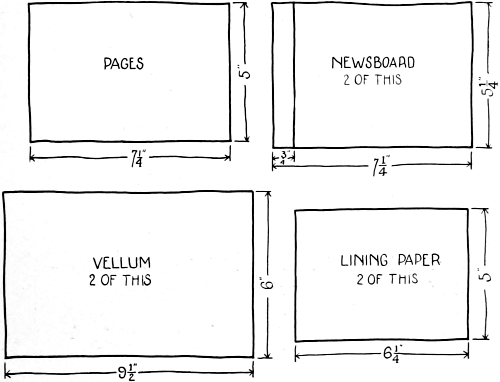 PAGES
5"
7 1/4"
NEWSBOARD
2 OF THIS
5 1/4"
3/4"
7 1/4"
VELLUM
2 OF THIS
6"
9 1/2"
LINING PAPER
2 OF THIS
5"
6 1/4"